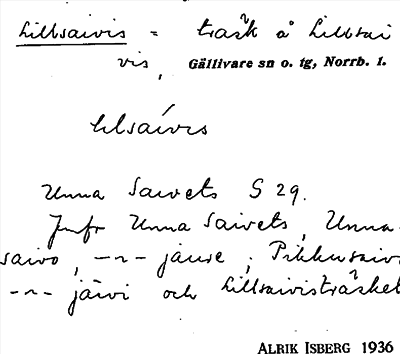 Lillsaivis = träsk å Lillsai
vis, Gällivare sn o. tg, Norrb. l.
lilsáivis
Unna Saivets S 29.
Jmfr Unna Saivets, Unna-
saivo, -"- jaure, Pikkusaivo
-"- järvi och Lillsaivisträsket
ALRIK ISBERG 1936